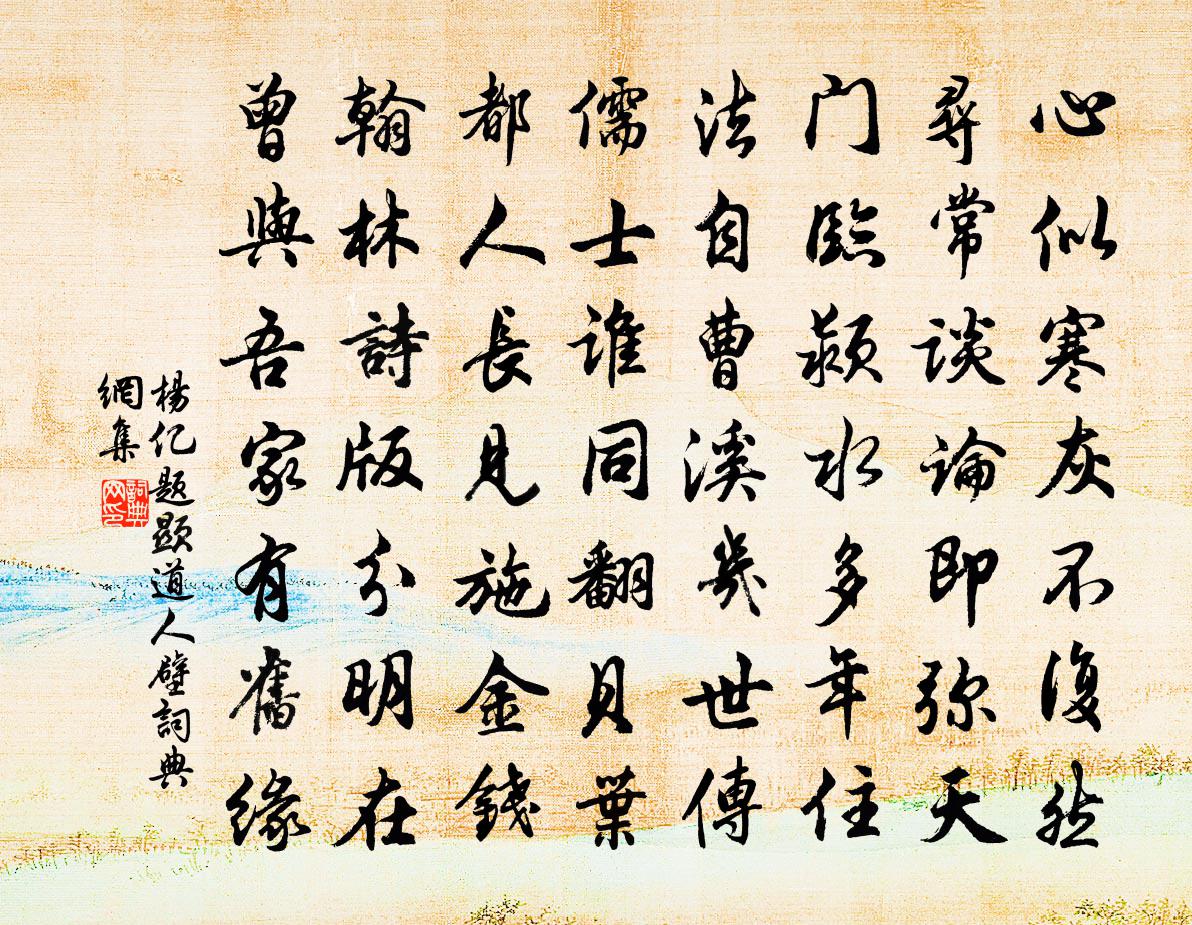 心似寒灰不復然
尋常談論即弥天
门臨颍水多年住
法自曹溪幾世傳
儒士誰同翻貝葉
都人長見施金錢
翰林詩版分明在
曾與吾家有舊緣
楊亿题顕道人壁詞典
網集
詞典
网印